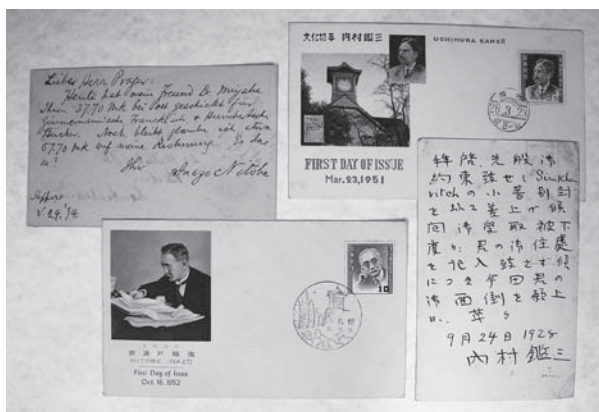 Lieber Herr Prager:
Heute hat mein Freund Dr. Miyabe
Ihnen 37.70 Mk bei Post geschickt für
Francklich
Bücher. Noch bleibt glaube ich etwa
57.70 Mk auf meine Rechnung. Es
Ihr
Inazo Nitobe
Sapporo
V. 29. '94
文化切手 内村鑑三
UCHIMURA KANZŌ
FIRST DAY OF ISSUE
Mar. 23, 1951
26.3.23
拝啓、先般御
約束致せし Simkh
vitch の小著別封
を以て差上げ候
間御受取被下
度候 君の御住處
を記入致さず候
につき今田君の
御面倒を願上
候 草々
9月24日 1925
内村鑑三
10
新渡戸稲造
NITOBE INAZO
First Day of Issue
Oct. 16, 1952